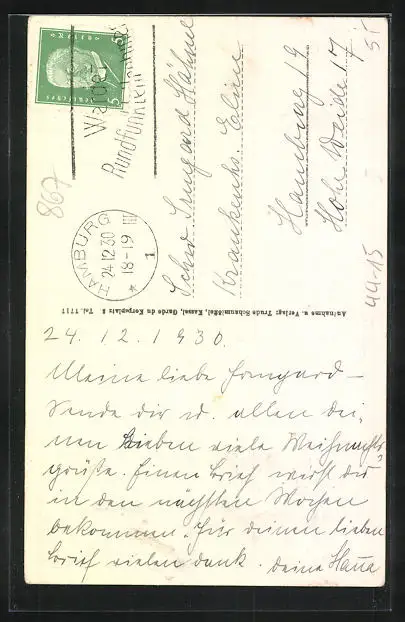 5
Deutsches Reich
5
Werdet
Rundfunkteilnehmer
HAMBURG
24.12.30 18-19
* 1
Schw. Irmgard Hähnel
Krankenhs. Elim
Hamburg 19
Hohe Weide 17
867
44-15
Aufnahme u. Verlag: Trude Schaumlöffel, Kassel, Garde du Korpsplatz 5 Tel. 1717
24. 12. 1930.
Meine liebe Irmgard –
Sende dir u. allen dei-
nen Lieben viele Weihnachts-
grüße. Einen Brief wirst du
in den nächsten Wochen
bekommen. Für deinen lieben
Brief vielen dank. Deine Hanna